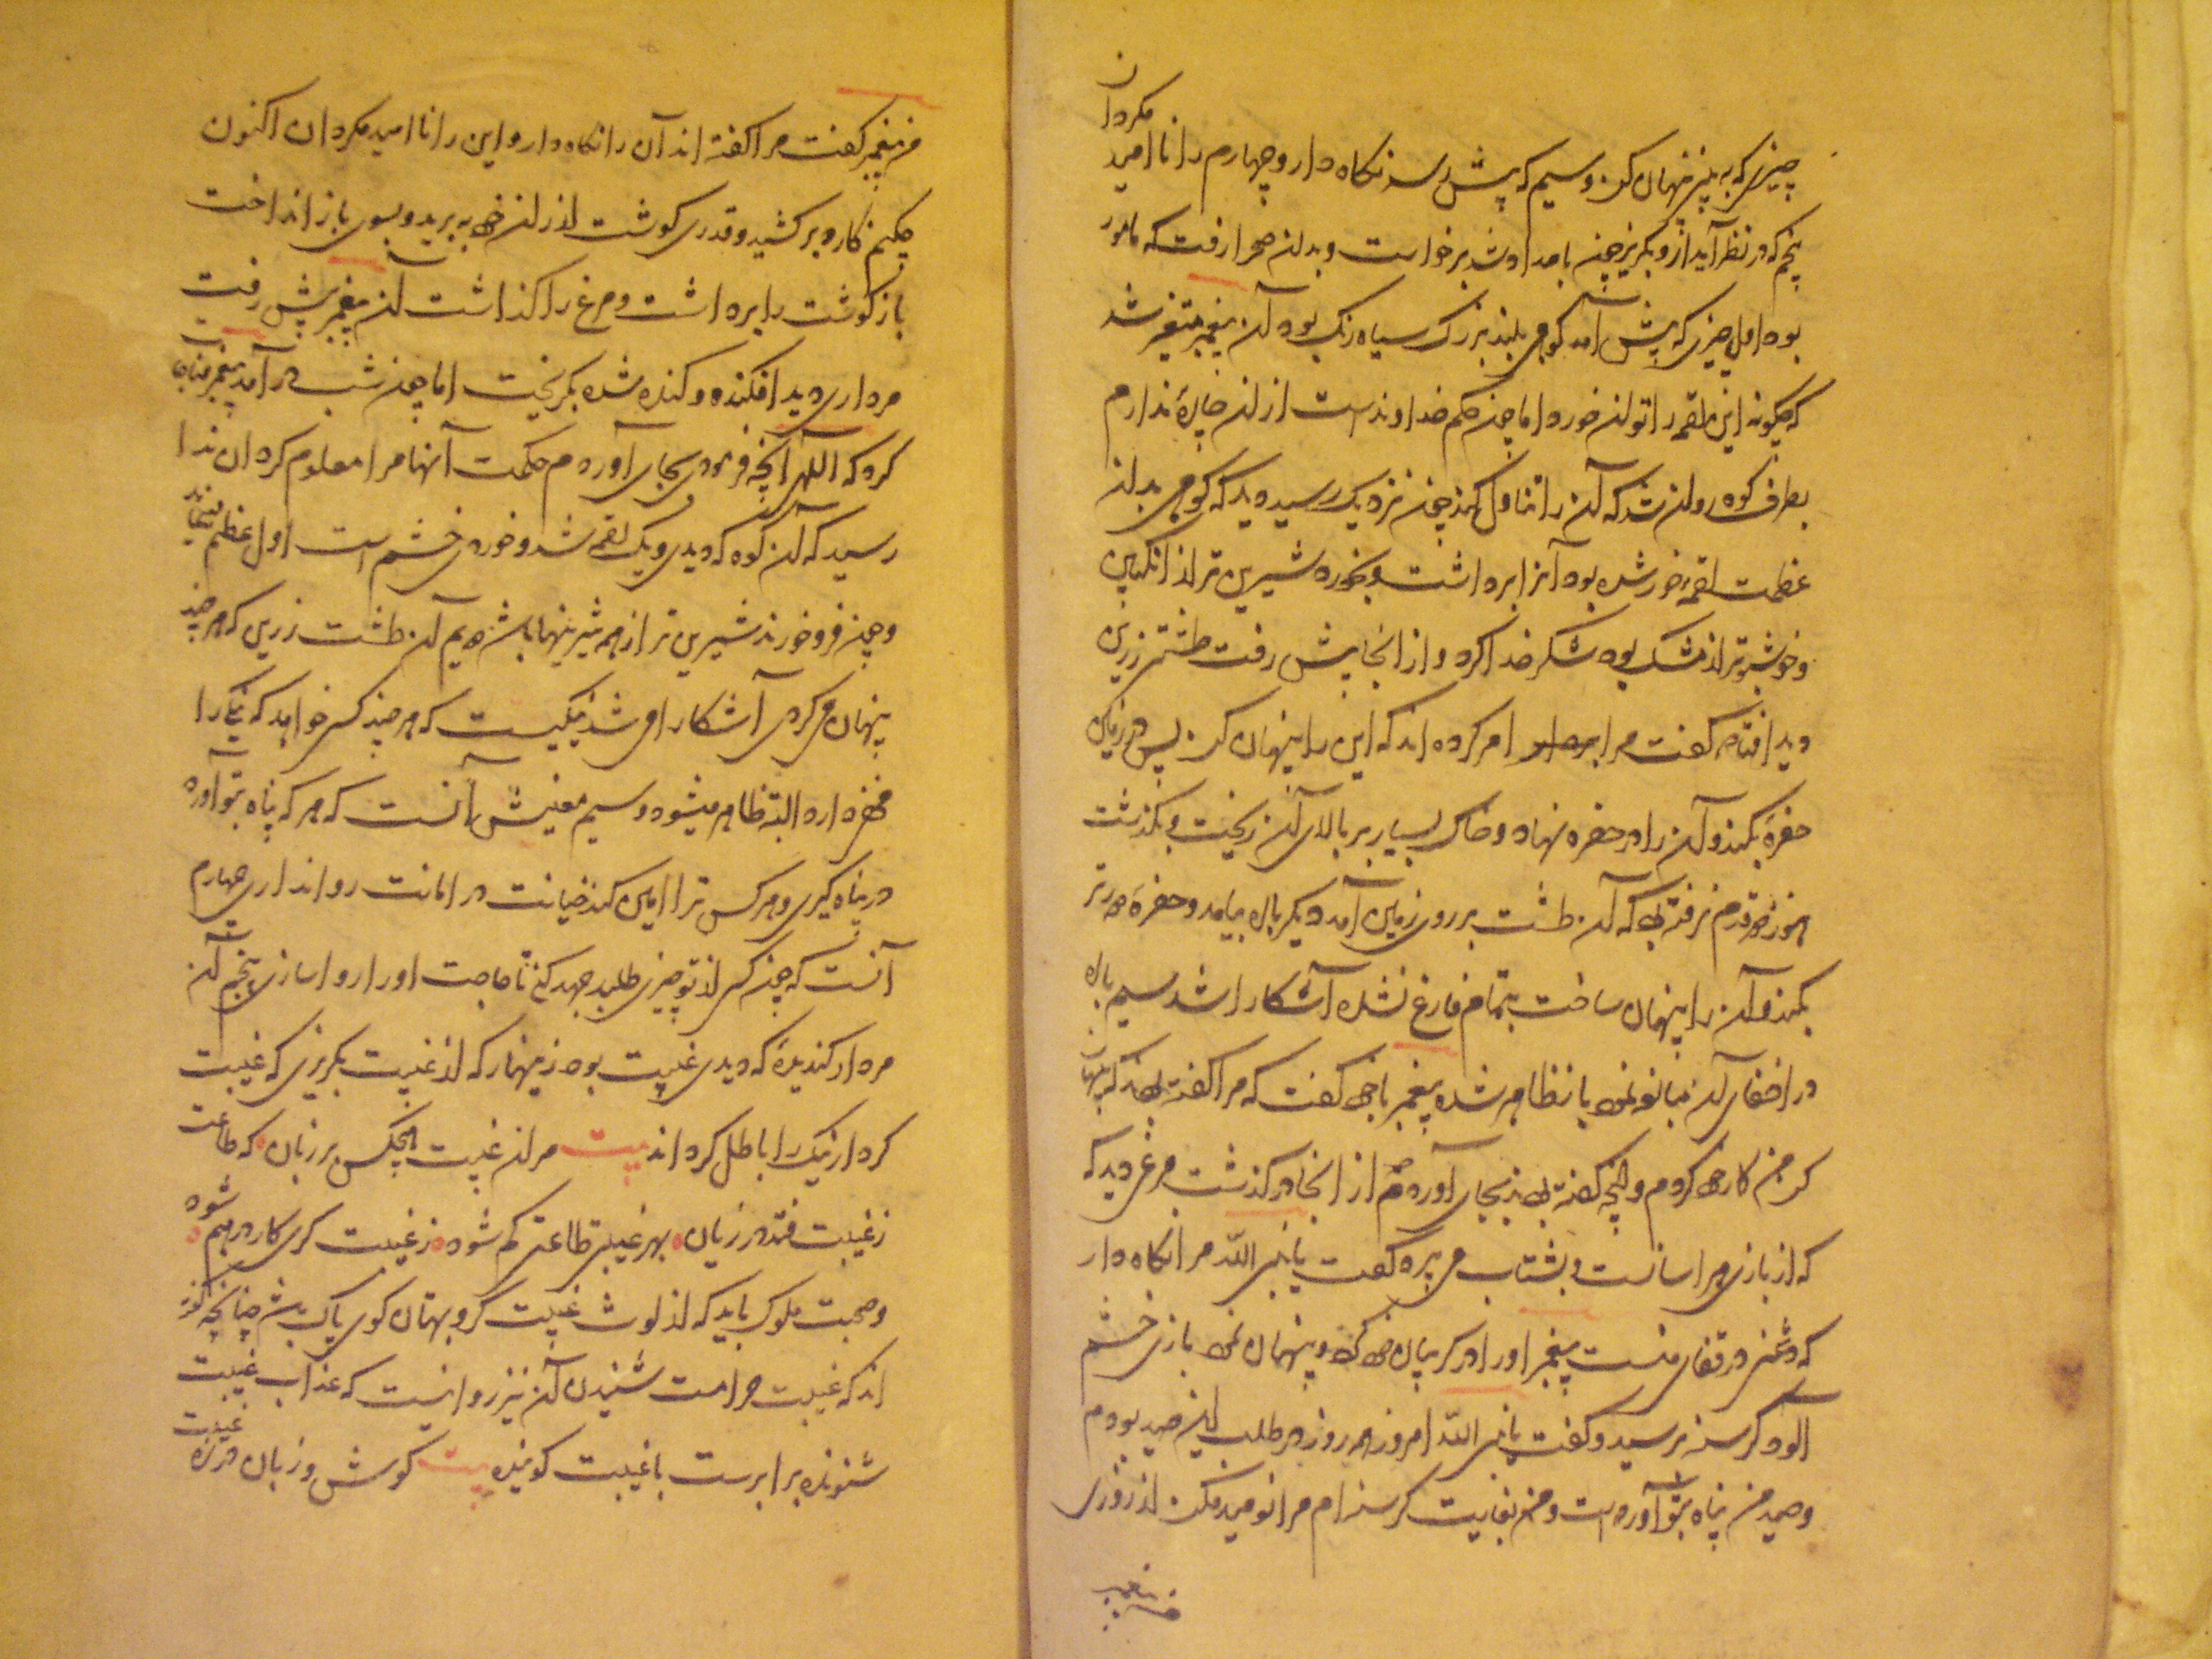 چیزی که به بینی پنهان کن و سیم که پیش رسد نکاه دار و چهارم را نا امید
مکردان
پنجم که در نظر آید ازو بکریز چون بامداد شد برخواست و بدان صحرا رفت که مامور
بود اول چیزی که پیش آمد کوهی بلند بزرک سیاه رنک بود آن پیغمبر متغیر شد
که چکونه این لقمه را توان خورد اما چون حکم خداوندست از ان چارهٔ ندارم
بطرف کوه روان شد که آن را تناول کند چون نزدیک رسید دید که کوهی بدان
عظمت لقمهٔ خورش شده بود آنرا برداشت و بخورد شیرین تر از انکبین
و خوشبوتر از مشک بود شکر خدا کرد و از انجا پیش رفت طشتی زرین
دید افتاده کفت مرا امر کرده اند که این را پنهان کن پس در زمین
حفرهٔ بکند و آن را در حفره نهاد و خاک بسیار بر بالای آن ریخت و بکذشت
هنوز قدم نرفته بود که آن طشت بر روی زمین آمد دیکر باره بیامد و حفرهٔ دورتر
بکند و آن را پنهان ساخت بتمام فارغ نشده آشکارا شد سیم باره
در اخفای آن مبالغه نمود باز ظاهر شد پیغمبر با خود کفت که مرا کفته بودند که پنهان
کن من کار خود کردم و انچه کفته بودند بجای آوردم از انجا در کذشت مرغی دید که
که از بازی هراسانست و بشتاب می پرد کفت یا نبی الله مرا نکاه دار
که دشمن در قفای منست پیغمبر او را در کریبان خود کرد و پنهان نمود بازی خشم
آلود کرسنه برسید و کفت یا نبی الله امروز همه روز در طلب این صید بودم
و صید من پناه بتو آورده است و من بغایت کرسنه ام مرا نومید مکن از روزی
من پیغمبر
من پیغمبر کفت مرا کفته اند آن را نکاه دار و این را نا امید مکردان اکنون
چکنم کارد بر کشید و قدری کوشت از ران خود ببرید و بسوی باز انداخت
باز کوشت را برداشت و مرغ را کذاشت آن پیغمبر پیش رفت
مرداری دید افکنده و کنده شده بکریخت اما چون شب در آمد پیغمبر مناجات
کرد که الهی آنچه فرمودی بجای آوردم حکمت آنها مرا معلوم کردان ندا
رسید که آن کوه که دیدی و یک لقمه شد و خوردی خشم است اول عظیم مینماید
و چون فرو خورند شیرین تر از همه شیرینیها باشد دویم آن طشت زرین که هر چند
پنهان می کردی آشکارا می شد نیکیست که هر چند کسی خواهد که نیکی را
مخفی دارد البته ظاهر میشود و سیم معنیش آنست که هر که پناه بتو آورد
در پناه کیری و هر کس ترا امین کند خیانت در امانت روا نداری چهارم
آنست که چون کسی از تو چیزی طلبد جهد کنی تا حاجت او را روا سازی پنجم آن
مردار کندیدهٔ که دیدی غیبت بود زینهار که از غیبت بکریزی که غیبت
کردار نیک را باطل کرداند بیت مران غیبت هیچکس بر زبان که طاعت
ز غیبت فتد در زیان بهر غیبتی طاعتی کم شود ز غیبت کری کار درهم شود
و صحبت ملوک باید که از لوث غیبت کر و بهتان کوی پاک باشد چنانچه کفته
اند که غیبت حرامست شنیدن آن نیز روا نیست که عذاب غیبت
شنونده برابرست با غیبت کوینده بیت کوش و زبان در ره غیبت